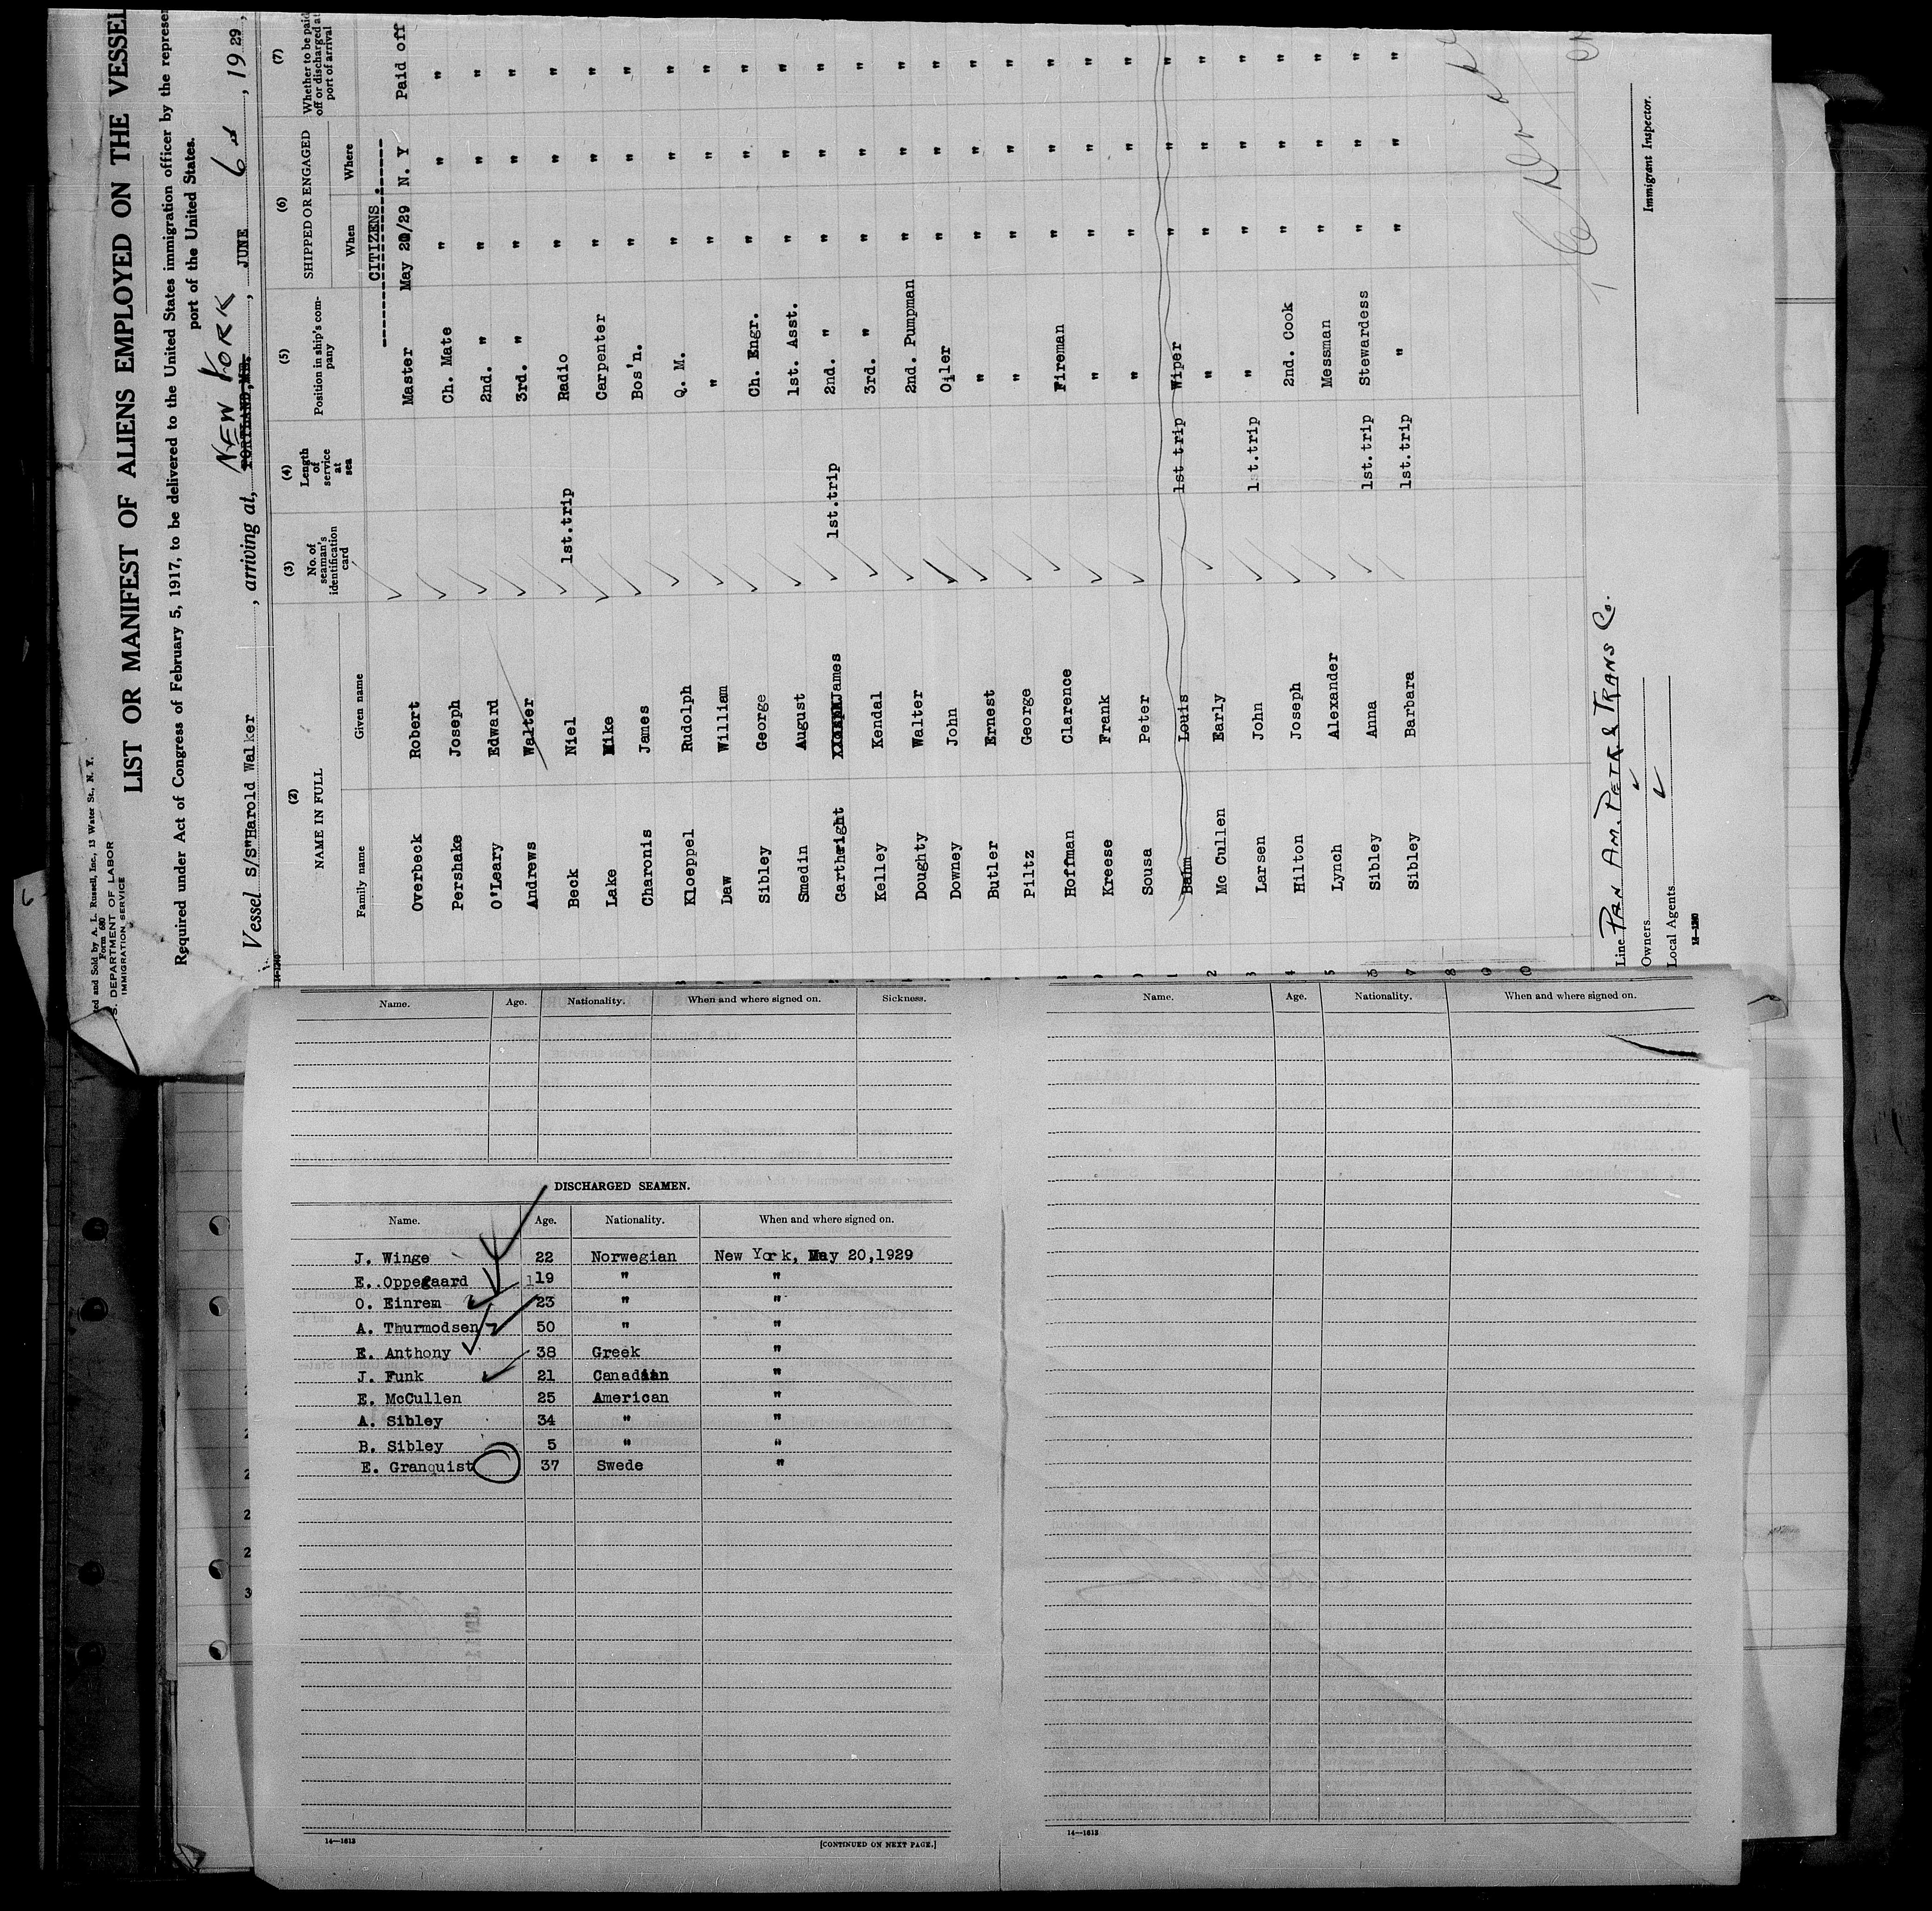 ed and Sold by A. L. Russell, Inc., 13 Water St., N. Y.
Form 680
S. DEPARTMENT OF LABOR
IMMIGRATION SERVICE
LIST OR MANIFEST OF ALIENS EMPLOYED ON THE VESSEL
Required under Act of Congress of February 5, 1917, to be delivered to the United States immigration officer by the represen
port of the United States.
NEW YORK
Vessel S/S"Harold Walker, arriving at, PORTLAND,ME., JUNE 6th, 1929,
14-1240
(2) (3) (4) (5) (6) (7)
NAME IN FULL No. of seaman's identification card Length of service at sea Position in ship's company SHIPPED OR ENGAGED Whether to be paid off or discharged at port of arrival
Family name Given name When Where
CITIZENS.
Overbeck Robert Master May 20/29 N. Y Paid off
Pershake Joseph Ch. Mate " " "
O'Leary Edward 2nd. " " " "
Andrews Walter 3rd. " " " "
Beck Niel 1st.trip Radio " " "
Lake Mike Carpenter " " "
Charonis James Bos'n. " " "
Kloeppel Rudolph Q. M. " " "
Daw William " " " "
Sibley George Ch. Engr. " " "
Smedin August 1st. Asst. " " "
Garthright James 1st.trip 2nd. " " " "
Kelley Kendal 3rd. " " " "
Doughty Walter 2nd. Pumpman " " "
Downey John Oiler " " "
Butler Ernest " " " "
Piltz George " " " "
Hoffman Clarence Fireman " " "
Kreese Frank " " " "
Sousa Peter " " " "
Bahm Louis 1st trip Wiper " " "
Mc Cullen Early " " " "
Larsen John 1st.trip " " " "
Hilton Joseph 2nd. Cook " " "
Lynch Alexander Messman " " "
Sibley Anna 1st.trip Stewardess " " "
Sibley Barbara 1st.trip " " " "
Line PAN AM. PETR. & TRANS Co.
Owners
Local Agents
Immigrant Inspector.
14-1240
Name. Age. Nationality. When and where signed on. Sickness.
DISCHARGED SEAMEN.
Name. Age. Nationality. When and where signed on.
J. Winge 22 Norwegian New York, May 20,1929
E. Oppegaard 19 " "
O. Einrem 23 " "
A. Thurmodsen 50 " "
E. Anthony 38 Greek "
J. Funk 21 Canadian "
E. McCullen 25 American "
A. Sibley 34 " "
B. Sibley 5 " "
E. Granquist 37 Swede "
14—1613
[CONTINUED ON NEXT PAGE.]
Name. Age. Nationality. When and where signed on.
14—1613